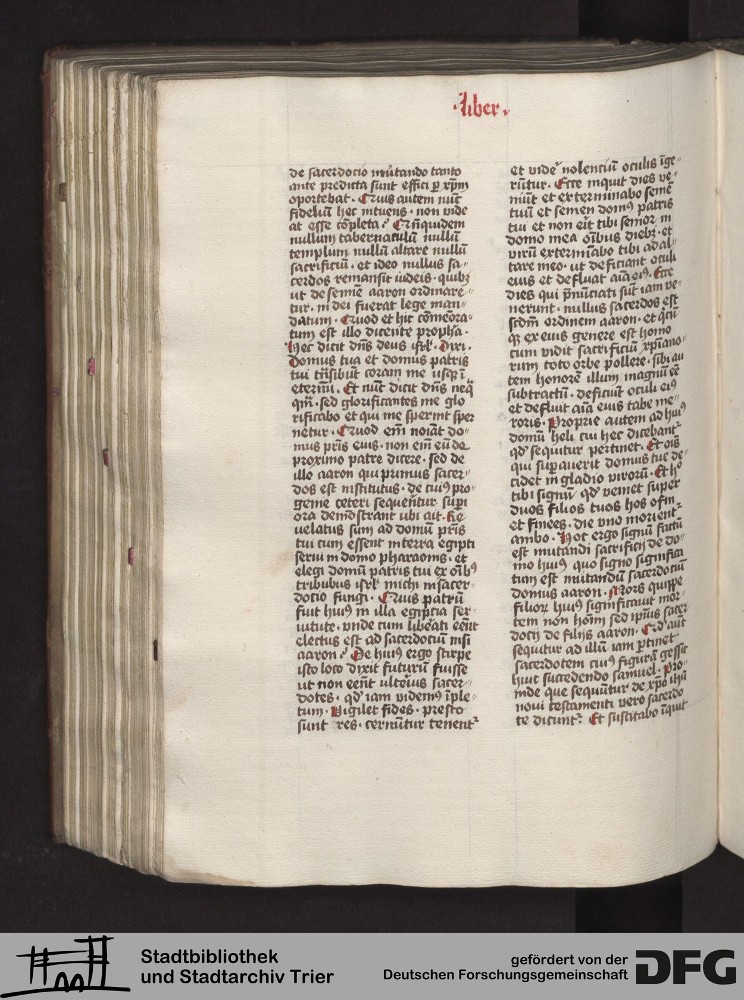 ·liber·
de sacerdocio mutando tanto
ante predicta sunt effici p xpm
oportebat. Quis autem nūc
fideliū hec intuens. non vide
at esse cōpleta? Qn̄quidem
nullum tabernaculū nullū
templum nullū altare nullū
sacrificiū. et ideo nullus sa
cerdos remansit iudeis. quibz
ut de semīe aaron ordinare
tur. in dei fuerat lege man
datum. Quod et hic cōmēora
tum est illo dicente propha.
Hec dicit dn̄s deus isrl. Dixi.
Domus tua et domus patris
tui trāsibūt coram me usqz ī
eternū. Et nūc dicit dn̄s neq̄
q̄m. sed glorificantes me glo
rificabo et qui me spernit sper
netur. Quod em̄ noiat do
mus pr̄is eius. non em̄ eū de
proximo patre dicere. sed de
illo aaron qui primus sacer
dos est institutus. de cuiꝰ pro
genie ceteri sequerētur supi
ora demōstrant ubi ait. Re
uelatus sum ad domū pr̄is
tui cum essent in terra egipti
serui in domo pharaonis. et
elegi domū patris tui ex oībꝰ
tribubus isrl michi in sacer
docio fungi. Quis patrū
fuit huiꝰ in illa egiptia ser
uitute. unde cum liberati eēnt
electus est ad sacerdociū nisi
aaron? De huiꝰ ergo stirpe
isto loco dixit futurū fuisse
ut non eēnt ulterius sacer
dotes. qd' iam videmꝰ īple
tum. Vigilet fides. presto
sunt res. cernūtur tenent
et vide nolentiū oculis īge
rūtur. Ecce inquit dies ve
niūt et exterminabo semē
tuū et semen domꝰ patris
tui et non erit tibi senior in
domo mea oībus diebz. et
virū exterminabo tibi ad al
tare meo. ut deficiant oculi
eius et defluat aīa eiꝰ. Ecce
dies qui p̄nūciati sūt iam ve
nerunt. nullus sacerdos est
scdm ordinem aaron. et q̄cū
qz ex eius genere est homo
cum vidit sacrificiū xpīano
rum toto orbe pollere. sibi au
tem honorē illum magnū eē
subtractū. deficiūt oculi eiꝰ
et defluit aīa eius tabe me
roris. Proprie autem ad huiꝰ
domū heli cui hec dicebant
qd' sequitur pertinet. Et oīs
qui superauerit domus tue de
cidet in gladio virorū. Et hoc
tibi signū qd' veniet super
duos filios tuos hos ofin
et finees. die uno morient
ambo. Hoc ergo signū factū
est mutandi sacrificii de do
mo huiꝰ. quo signo significa
tum est mutandū sacerdociū
domus aaron. Mors quippe
filiorū huiꝰ significauit mor
tem non hoīm sed ipīus sacer
docii de filiis aaron. Qd' aūt
sequitur ad illū iam ptinet
sacerdotem cuiꝰ figurā gessit
huic succedendo samuel. Pro
inde que sequūtur de xpo ihū
noui testamenti vero sacerdo
te dicunt. Et suscitabo īquit
Stadtbibliothek
und Stadtarchiv Trier
gefördert von der
Deutschen Forschungsgemeinschaft
DFG